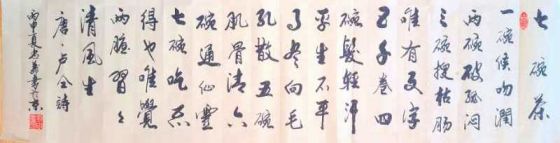 七碗茶
一碗喉吻潤
两碗破孤闷
三碗搜枯肠
唯有文字
五千卷四
碗發輕汗
平生不平
事尽向毛
孔散五碗
肌骨清六
碗通仙靈
七碗吃不
得也唯覺
两腋習々
清風生
唐·卢仝詩